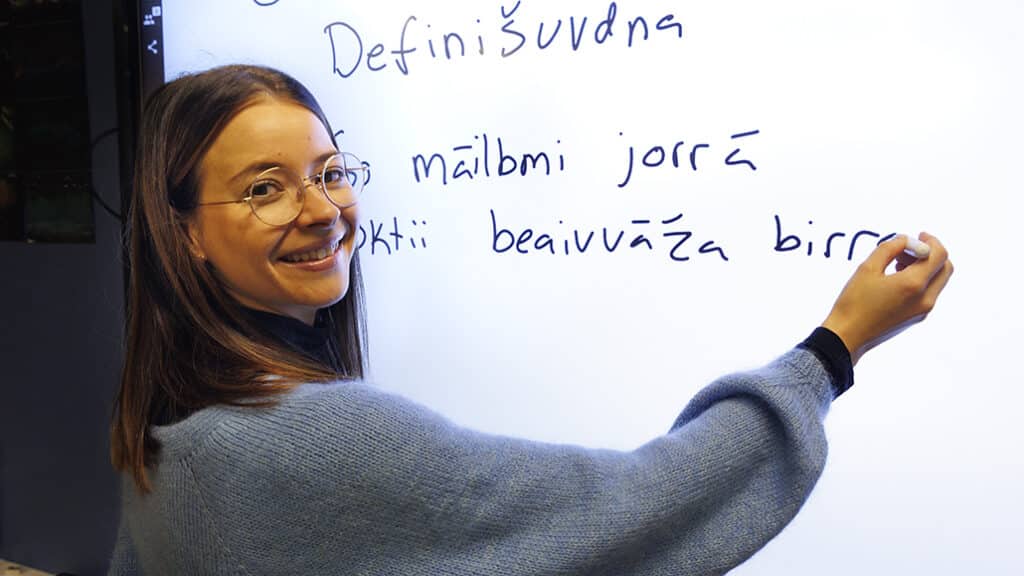 Definišuvdna
māilbmi jorrā
oktii beaivvāža birra